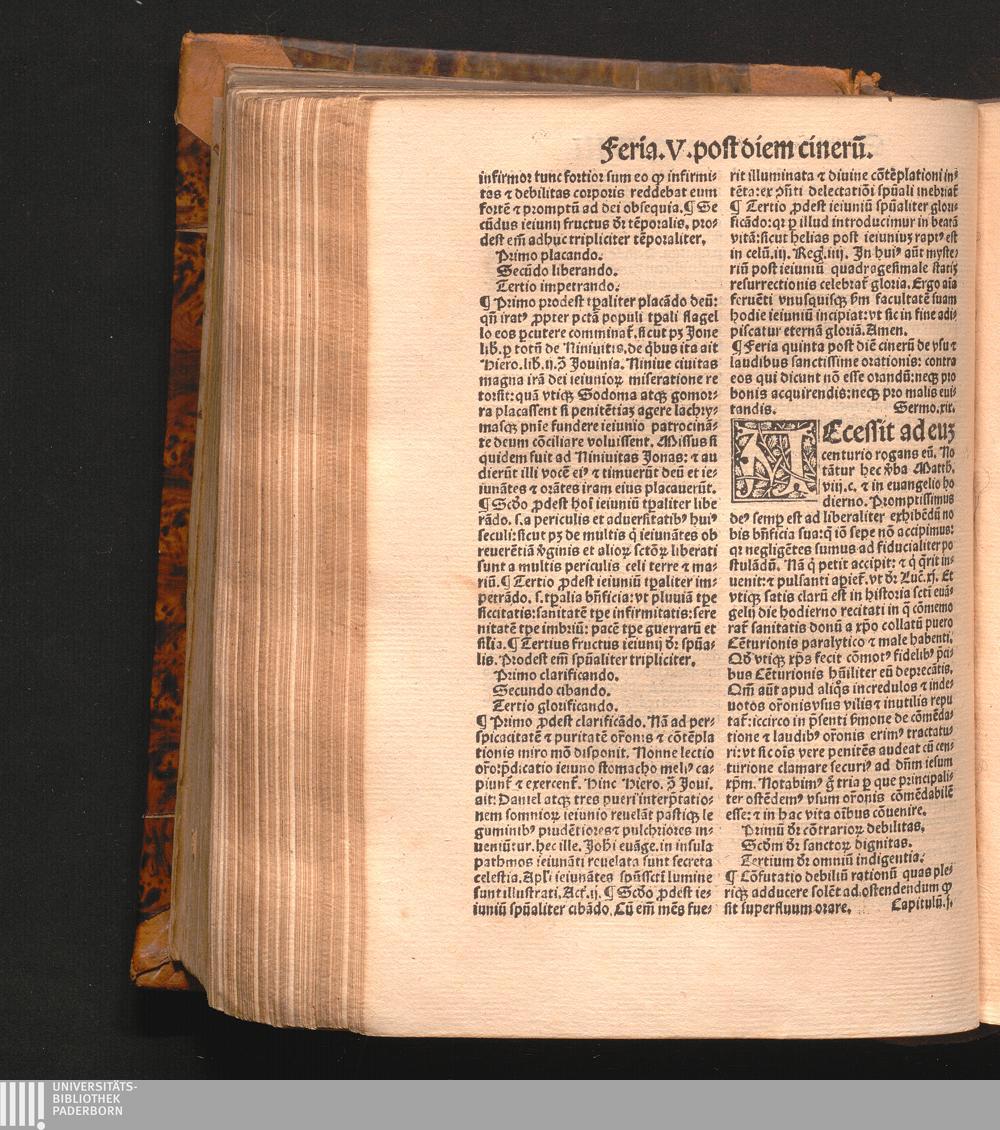 Feria.V.post diem cinerū.
infirmor tunc fortior sum eo ꝙ infirmi⸗
tas ⁊ debilitas corporis reddebat eum
fortē ⁊ promptū ad dei obsequia.¶ Se
cūdus ieiunij fructus dr̄ tēporalis, pro⸗
dest em̄ adhuc tripliciter tēporaliter,
Primo placando.
Secūdo liberando.
Tertio impetrando.
¶ Primo prodest tꝑaliter placādo deū:
qn̄ iratꝰ ꝓpter pctā populi tꝑali flagel
lo eos ꝑcutere comminat̄.sicut pꝫ Jone
lib̄.ꝑ totū de Niniuitis.de qͥbus ita ait
Hiero.lib̄.ij.ↄ̄ Jouinia. Niniue ciuitas
magna irā dei ieiunioꝝ miseratione re
torsit: quā vtiqꝫ Sodoma atqꝫ gomor⸗
ra placassent si penitētiaꝫ agere lachry⸗
masqꝫ pn̄ie fundere ieiunio patrocinā⸗
te deum cōciliare voluissent. Missus si
quidem fuit ad Niniuitas Jonas: ⁊ au
dierūt illi vocē eiꝰ ⁊ timuerūt deū et ie⸗
iunātes ⁊ orātes iram eius placauerūt.
¶ Scd̄o ꝓdest hoī ieiuniū tꝑaliter libe
rādo. s.a periculis et aduersitatibꝰ huiꝰ
seculi:sicut pꝫ de multis q̇ ieiunātes ob
reuerētiā v̄ginis et alioꝝ sctōꝝ liberati
sunt a multis periculis celi terre ⁊ ma⸗
riū.¶ Tertio ꝓdest ieiuniū tꝑaliter im⸗
petrādo. s.tꝑalia bn̄ficia: vt pluuiā tꝑe
siccitatis:sanitatē tꝑe infirmitatis:sere
nitatē tꝑe imbriū: pacē tꝑe guerrarū et
silia.¶ Tertius fructus ieiunij dr̄ spūa⸗
lis. Prodest em̄ spūaliter tripliciter.
Primo clarificando.
Secundo cibando.
Tertio glorificando.
¶ Primo ꝓdest clarificādo. Nā ad per⸗
spicacitatē ⁊ puritatē or̄onis ⁊ cōtēpla
tionis miro mō disponit. Nonne lectio
or̄o:p̄dicatio ieiuno stomacho meliꝰ ca⸗
piunt̄ ⁊ exercent̄. Hinc Hiero. ↄ̄ Joui.
ait: Daniel atqꝫ tres pueri interp̄tatio⸗
nem somnioꝝ ieiunio reuelāt pastiqꝫ le
guminibꝰ prudētiores ⁊ pulchriores in⸗
ueniūtur.hec ille. Joh̄i euāge.in insula
pathmos ieiunāti reuelata sunt secreta
celestia. Apl̄i ieiunātes spūssctī lumine
sunt illustrati. Act̄.ij. ¶ Scd̄o ꝓdest ie⸗
iuniū spūaliter cibādo. Cū em̄ mēs fue⸗
rit illuminata ⁊ diuine cōtēplationi in⸗
tēta:ex ↄn̄ti delectatiōi spūali inebriat̄
¶ Tertio ꝓdest ieiuniū spūaliter glori⸗
ficādo:qꝛ ꝑ illud introducimur in beatā
vitā:sicut helias post ieiuniuꝫ raptꝰ est
in celū.iij. Reḡ.iiij. In huiꝰ aūt myste⸗
riū post ieiuniū quadragesimale statiꝫ
resurrectionis celebrat̄ gloria. Ergo aīa
feruēti vnusquisqꝫ ẜm facultatē suam
hodie ieiuniū incipiat:vt sic in fine adi⸗
piscatur eternā gloriā. Amen.
¶ Feria quinta post diē cinerū de vsu ⁊
laudibus sanctissime orationis: contra
eos qui dicunt nō esse orandū:neqꝫ pro
bonis acquirendis:neqꝫ pro malis eui⸗
tandis. Sermo.xix.
Accessit ad euꝫ
centurio rogans eū. No
tātur hec v̄ba Matth̄.
viij.c. ⁊ in euangelio ho
dierno. Promptissimus
deꝰ semꝑ est ad liberaliter exhibēdū no
bis bn̄ficia sua:q̇ iō sepe nō accipimus:
qꝛ negligētes sumus ad fiducialiter po
stulādū. Nā q̇ petit accipit: ⁊ q̇ q̄rit in⸗
uenit:⁊ pulsanti aꝑiet̄.vt dr̄ Luc̄.xj. Et
vtiqꝫ satis clarū est in historia scti euā⸗
gelij die hodierno recitati in q̇ cōmemo
rat̄ sanitatis donū a xp̄o collatū puero
Cēturionis paralytico ⁊ male habenti,
Qd̄ vtiqꝫ xp̄s fecit cōmotꝰ fidelibꝰ p̄ci⸗
bus Cēturionis hūiliter eū deprecātis.
Qm̄ aūt apud aliq̊s incredulos ⁊ inde⸗
uotos or̄onis vsus vilis ⁊ inutilis repu
tat̄:iccirco in p̄senti ẜmone de cōmēda⸗
tione ⁊ laudibꝰ or̄onis erimꝰ tractatu⸗
ri:vt sic oīs vere penitēs audeat cū cen⸗
turione clamare securiꝰ ad dn̄m iesum
xp̄m. Notabimꝰ g̊ tria ꝑ que principali⸗
ter ostēdemꝰ vsum or̄onis cōmēdabilē
esse: ⁊ in hac vita oībus cōuenire.
Primū dr̄ cōtrarioꝝ debilitas,
Scd̄m dr̄ sanctoꝝ dignitas.
Tertium dr̄ omniū indigentia.
¶ Cōfutatio debiliū rationū quas ple⸗
riqꝫ adducere solēt ad ostendendum ꝙ
sit superfluum orare, Capitulū.j.
UNIVERSITÄTS-
BIBLIOTHEK
PADERBORN